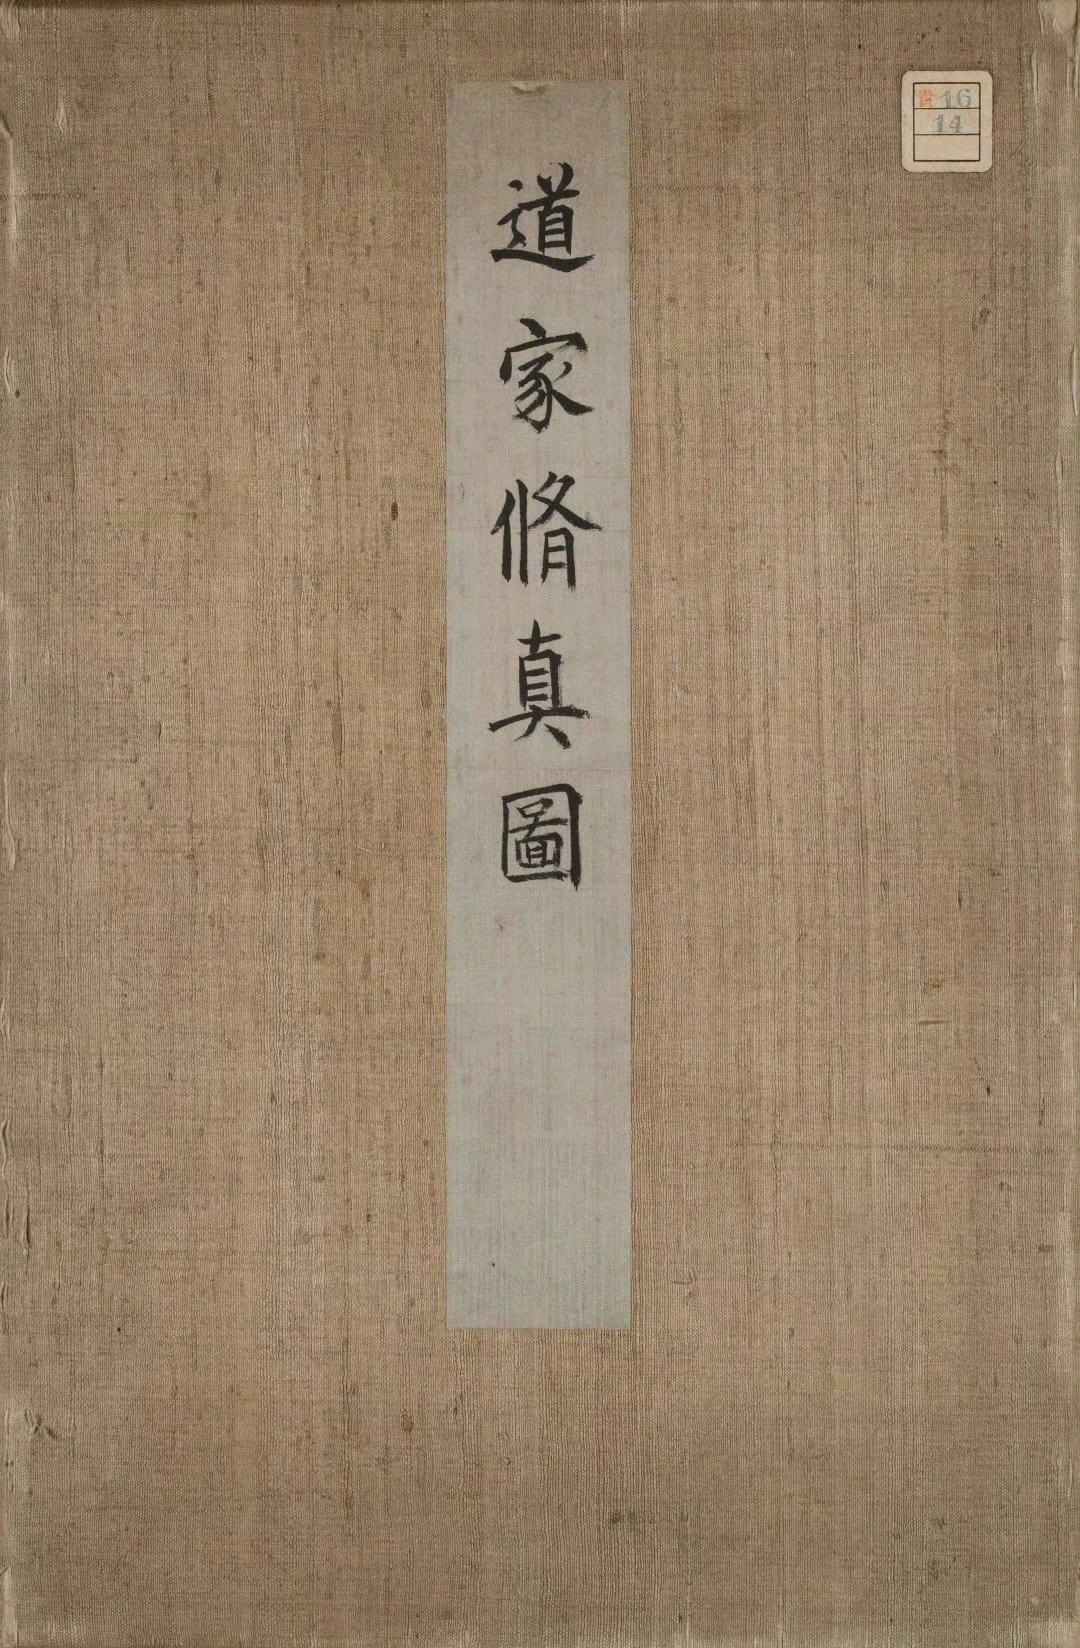 道家脩真圖
貴16
14